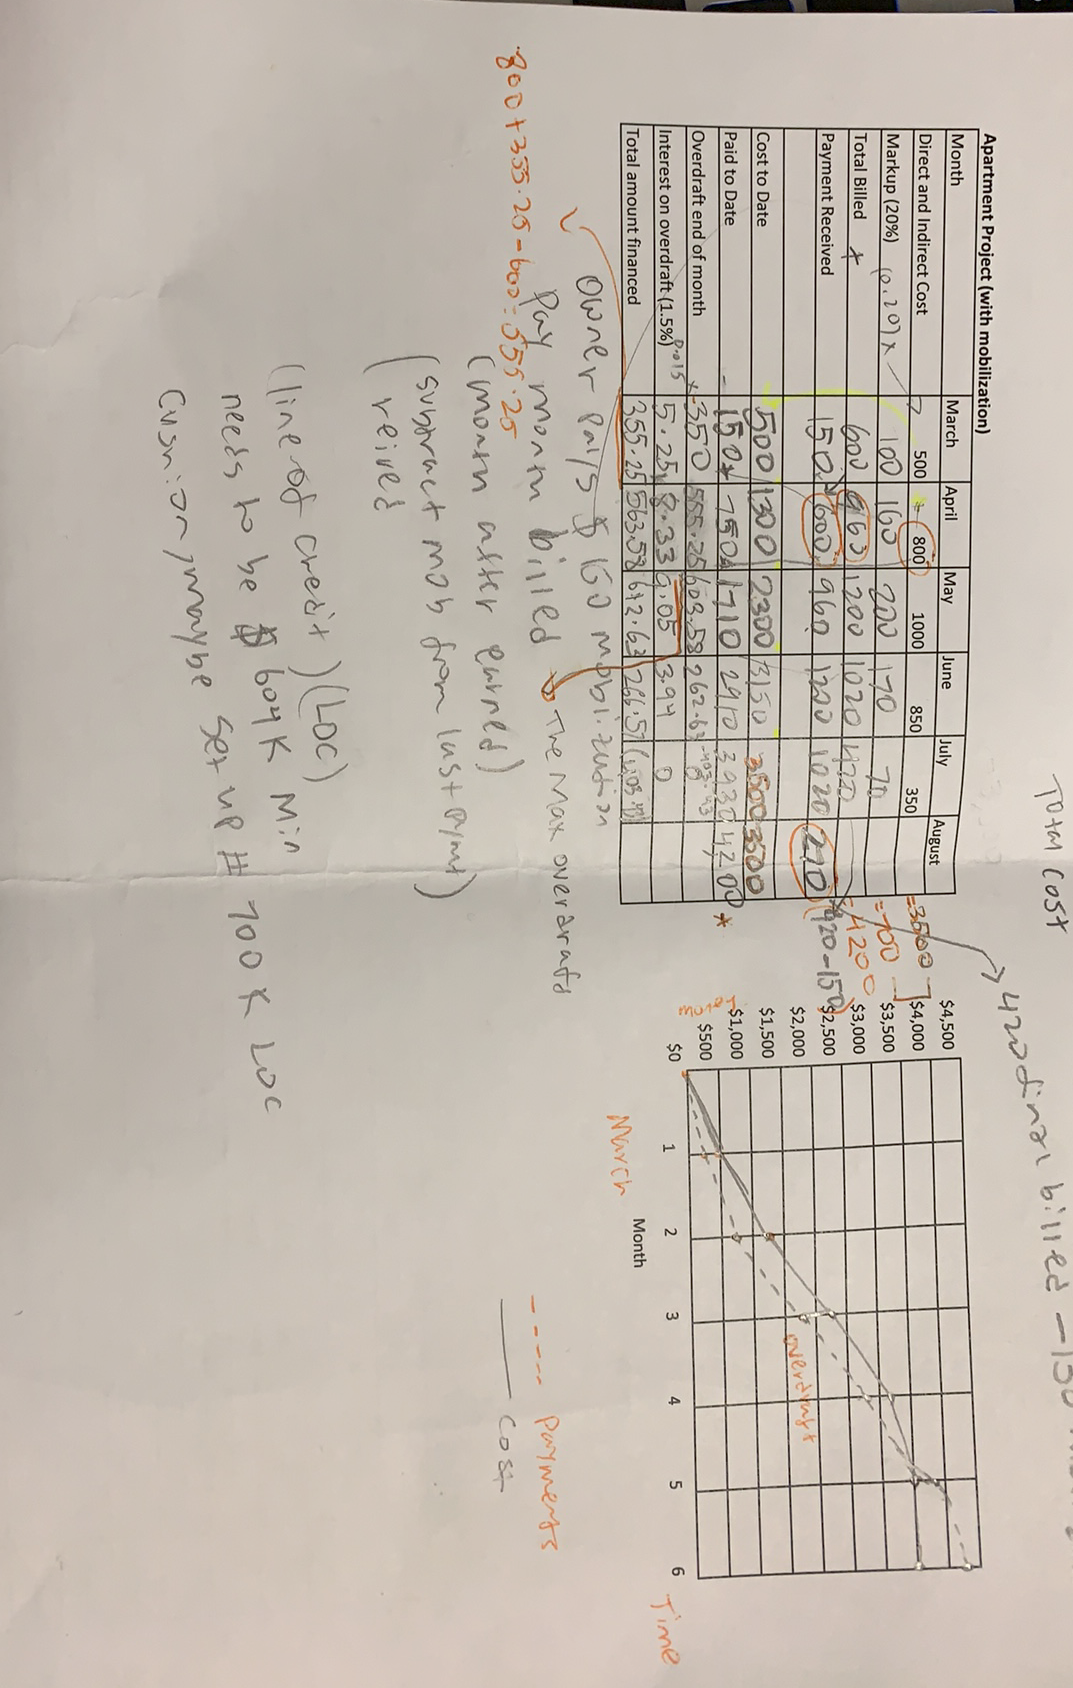 Total Cost
→ 420 final billed - 150
Apartment Project (with mobilization)
Month March April May June July August
Direct and Indirect Cost 500 + 800 1000 850 350 = 3500
Markup (20%) (0.20) x 100 160 200 170 70 = 700
Total Billed 600 960 1200 1020 420 = 4200
Payment Received 150 600 960 1200 1020 270 (420-150)
Cost to Date 500 1300 2300 3150 3500 3500
Paid to Date - 150 750 1710 2910 3930 4200 *
Overdraft end of month -350 555.25 603.58 262.63 -403.43
Interest on overdraft (1.5%) 0.015 x 5.25 8.33 9.05 3.94 0
Total amount financed 355.25 563.58 612.63 266.57
Owner pays $ 150 mobilization
Pay month billed → The Max overdraft
(month after earned)
(subtract mob from last pymt)
reived
800+355.25-600=555.25
(line of credit) (LOC)
needs to be $ 604K Min
Cusnion, maybe set up # 700K LOC
$4,500
$4,000
$3,500
$3,000
$2,500
$2,000
$1,500
$1,000
$500
$0
1 2 3 4 5 6
overdraft
March
Month
Time
----- payments
—— Cost